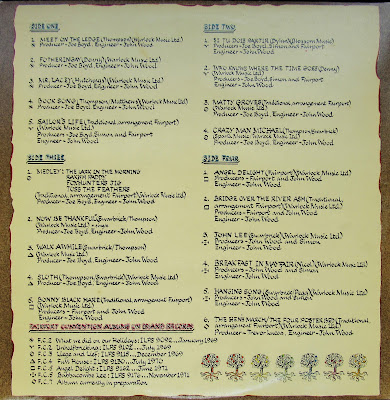 SIDE ONE
1. MEET ON THE LEDGE (Thompson) (Warlock Music Ltd.)
Producer - Joe Boyd, Engineer - John Wood
2. FOTHERINGAY (Denny) (Warlock Music Ltd.)
Producer - Joe Boyd, Engineer - John Wood
3. MR. LACEY (Hutchings) (Warlock Music Ltd.)
Producer - Joe Boyd, Engineer - John Wood
4. BOOK SONG (Thompson, Matthews) (Warlock Music Ltd.)
Producer - Joe Boyd, Engineer - John Wood
5. SAILOR'S LIFE (Traditional, arrangement Fairport)
(Warlock Music Ltd.)
Producers - Joe Boyd, Simon and Fairport
Engineer - John Wood
SIDE TWO
1. SI TU DOIS PARTIR (Dylan) (Blossom Music)
Producers - Joe Boyd, Simon and Fairport
Engineer - John Wood
2. WHO KNOWS WHERE THE TIME GOES (Denny)
(Warlock Music Ltd.)
Producers - Joe Boyd, Simon and Fairport
Engineer - John Wood
3. MATTY GROVES (Traditional, arrangement Fairport)
(Warlock Music Ltd.)
Producer - Joe Boyd, Engineer - John Wood
4. CRAZY MAN MICHAEL (Thompson, Swarbrick)
(Sparta Music, Warlock Music Ltd.)
Producer - Joe Boyd, Engineer - John Wood
SIDE THREE
1. MEDLEY: THE LARK IN THE MORNING
RAKISH PADDY
FOXHUNTERS JIG
TOSS THE FEATHERS
(Traditional, arrangement Fairport) (Warlock Music Ltd.)
Producer - Joe Boyd, Engineer - John Wood
2. NOW BE THANKFUL (Swarbrick/Thompson)
(Warlock Music Ltd.)
Producer - Joe Boyd, Engineer - John Wood
3. WALK AWHILE (Swarbrick/Thompson)
(Warlock Music Ltd.)
Producer - Joe Boyd, Engineer - John Wood
4. SLOTH (Thompson/Swarbrick) (Warlock Music Ltd.)
Producer - Joe Boyd, Engineer - John Wood
5. BONNY BLACK HARE (Traditional, arrangement Fairport)
(Warlock Music Ltd.)
Producer - Joe Boyd, Engineer - John Wood
FAIRPORT CONVENTION ALBUMS ON ISLAND RECORDS
F.C.2 What we did on our Holidays: ILPS 9092... January 1969
F.C.3 Unhalfbricking: ILPS 9102... July 1969
F.C.4 Liege and Lief: ILPS 9115... December 1969
F.C.4 Full House: ILPS 9130... July 1970
F.C.5 Angel Delight: ILPS 9162... June 1971
F.C.6 Babbacombe Lee: ILPS 9176... November 1971
F.C.7 Album currently in preparation
SIDE FOUR
1. ANGEL DELIGHT (Fairport) (Warlock Music Ltd.)
Producers - Fairport and John Wood
Engineer - John Wood
2. BRIDGE OVER THE RIVER ASH (Traditional,
arrangement Fairport) (Warlock Music Ltd.)
Producers - Fairport and John Wood
Engineer - John Wood
3. JOHN LEE (Swarbrick) (Warlock Music Ltd.)
Producers - John Wood and Simon
Engineer - John Wood
4. BREAKFAST IN MAYFAIR (Nicol) (Warlock Music Ltd.)
Producers - John Wood and Simon
Engineer - John Wood
5. HANGING SONG (Swarbrick/Pegg) (Warlock Music Ltd)
Producers - John Wood and Simon
Engineer - John Wood
6. THE HENS MARCH/THE FOUR POSTER BED (Traditional
arrangement Fairport) (Warlock Music Ltd.)
Producer - Trevor Lucas, Engineer - John Wood